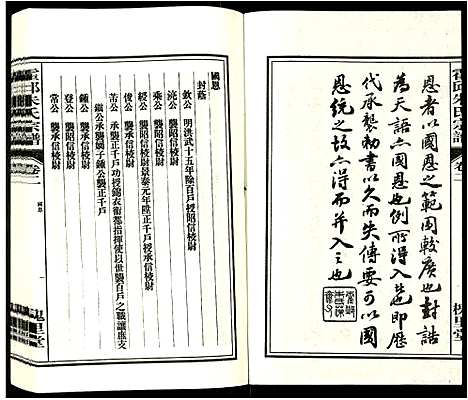 霍邱朱氏宗譜
卷二
槐里堂
恩者以國恩之範圍較廣也封誥
為天語亦國恩也例所得入芘即歷
代承襲勅書以久而失傳要可以國
恩統之故亦得而并入之也
霍邱朱氏宗譜
卷二
國恩
一
槐里堂
國恩
封蔭
欽公 明洪武十五年除百戶襲昭信校尉
澆公 襲昭信校尉
秉公 襲承信校尉
經公 襲昭信校尉景泰元年陞正千戶承信校尉
俊公 襲承信校尉
苦公 承襲正千戶功授錦衣衛都指揮使以世襲百戶之職讓應支
鎡公 承襲嫡子鍾公襲正千戶
鍾公 襲承信校尉
登公 襲承信校尉
常公 襲承信校尉